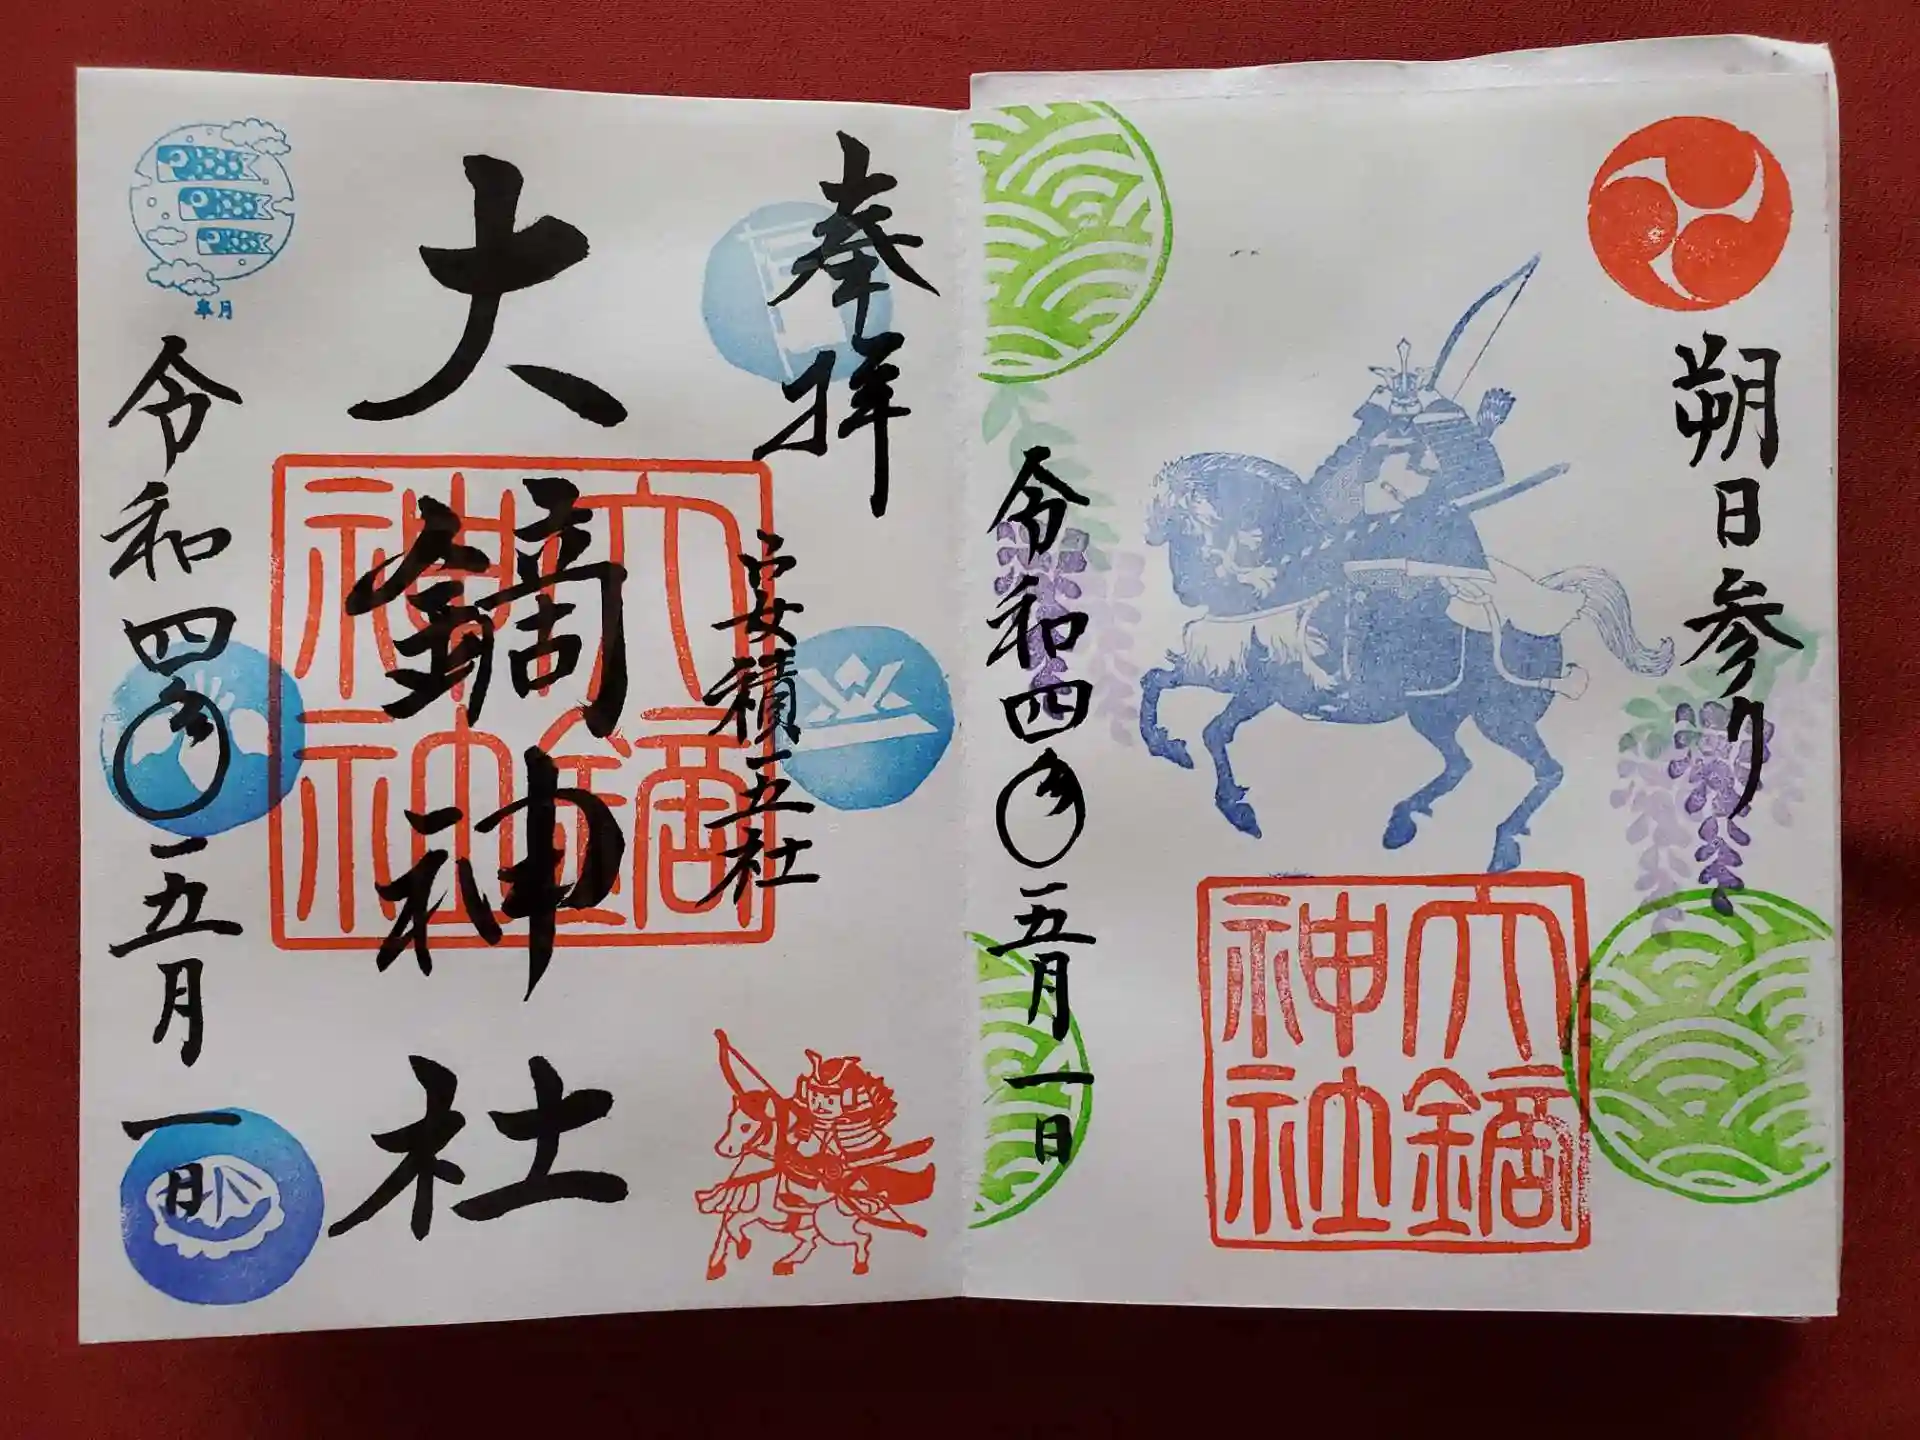 朔日参り
令和四年五月一日
大鏑神社
奉拝
安積五社
大鏑神社
大鏑神社
皐月
令和四年五月一日